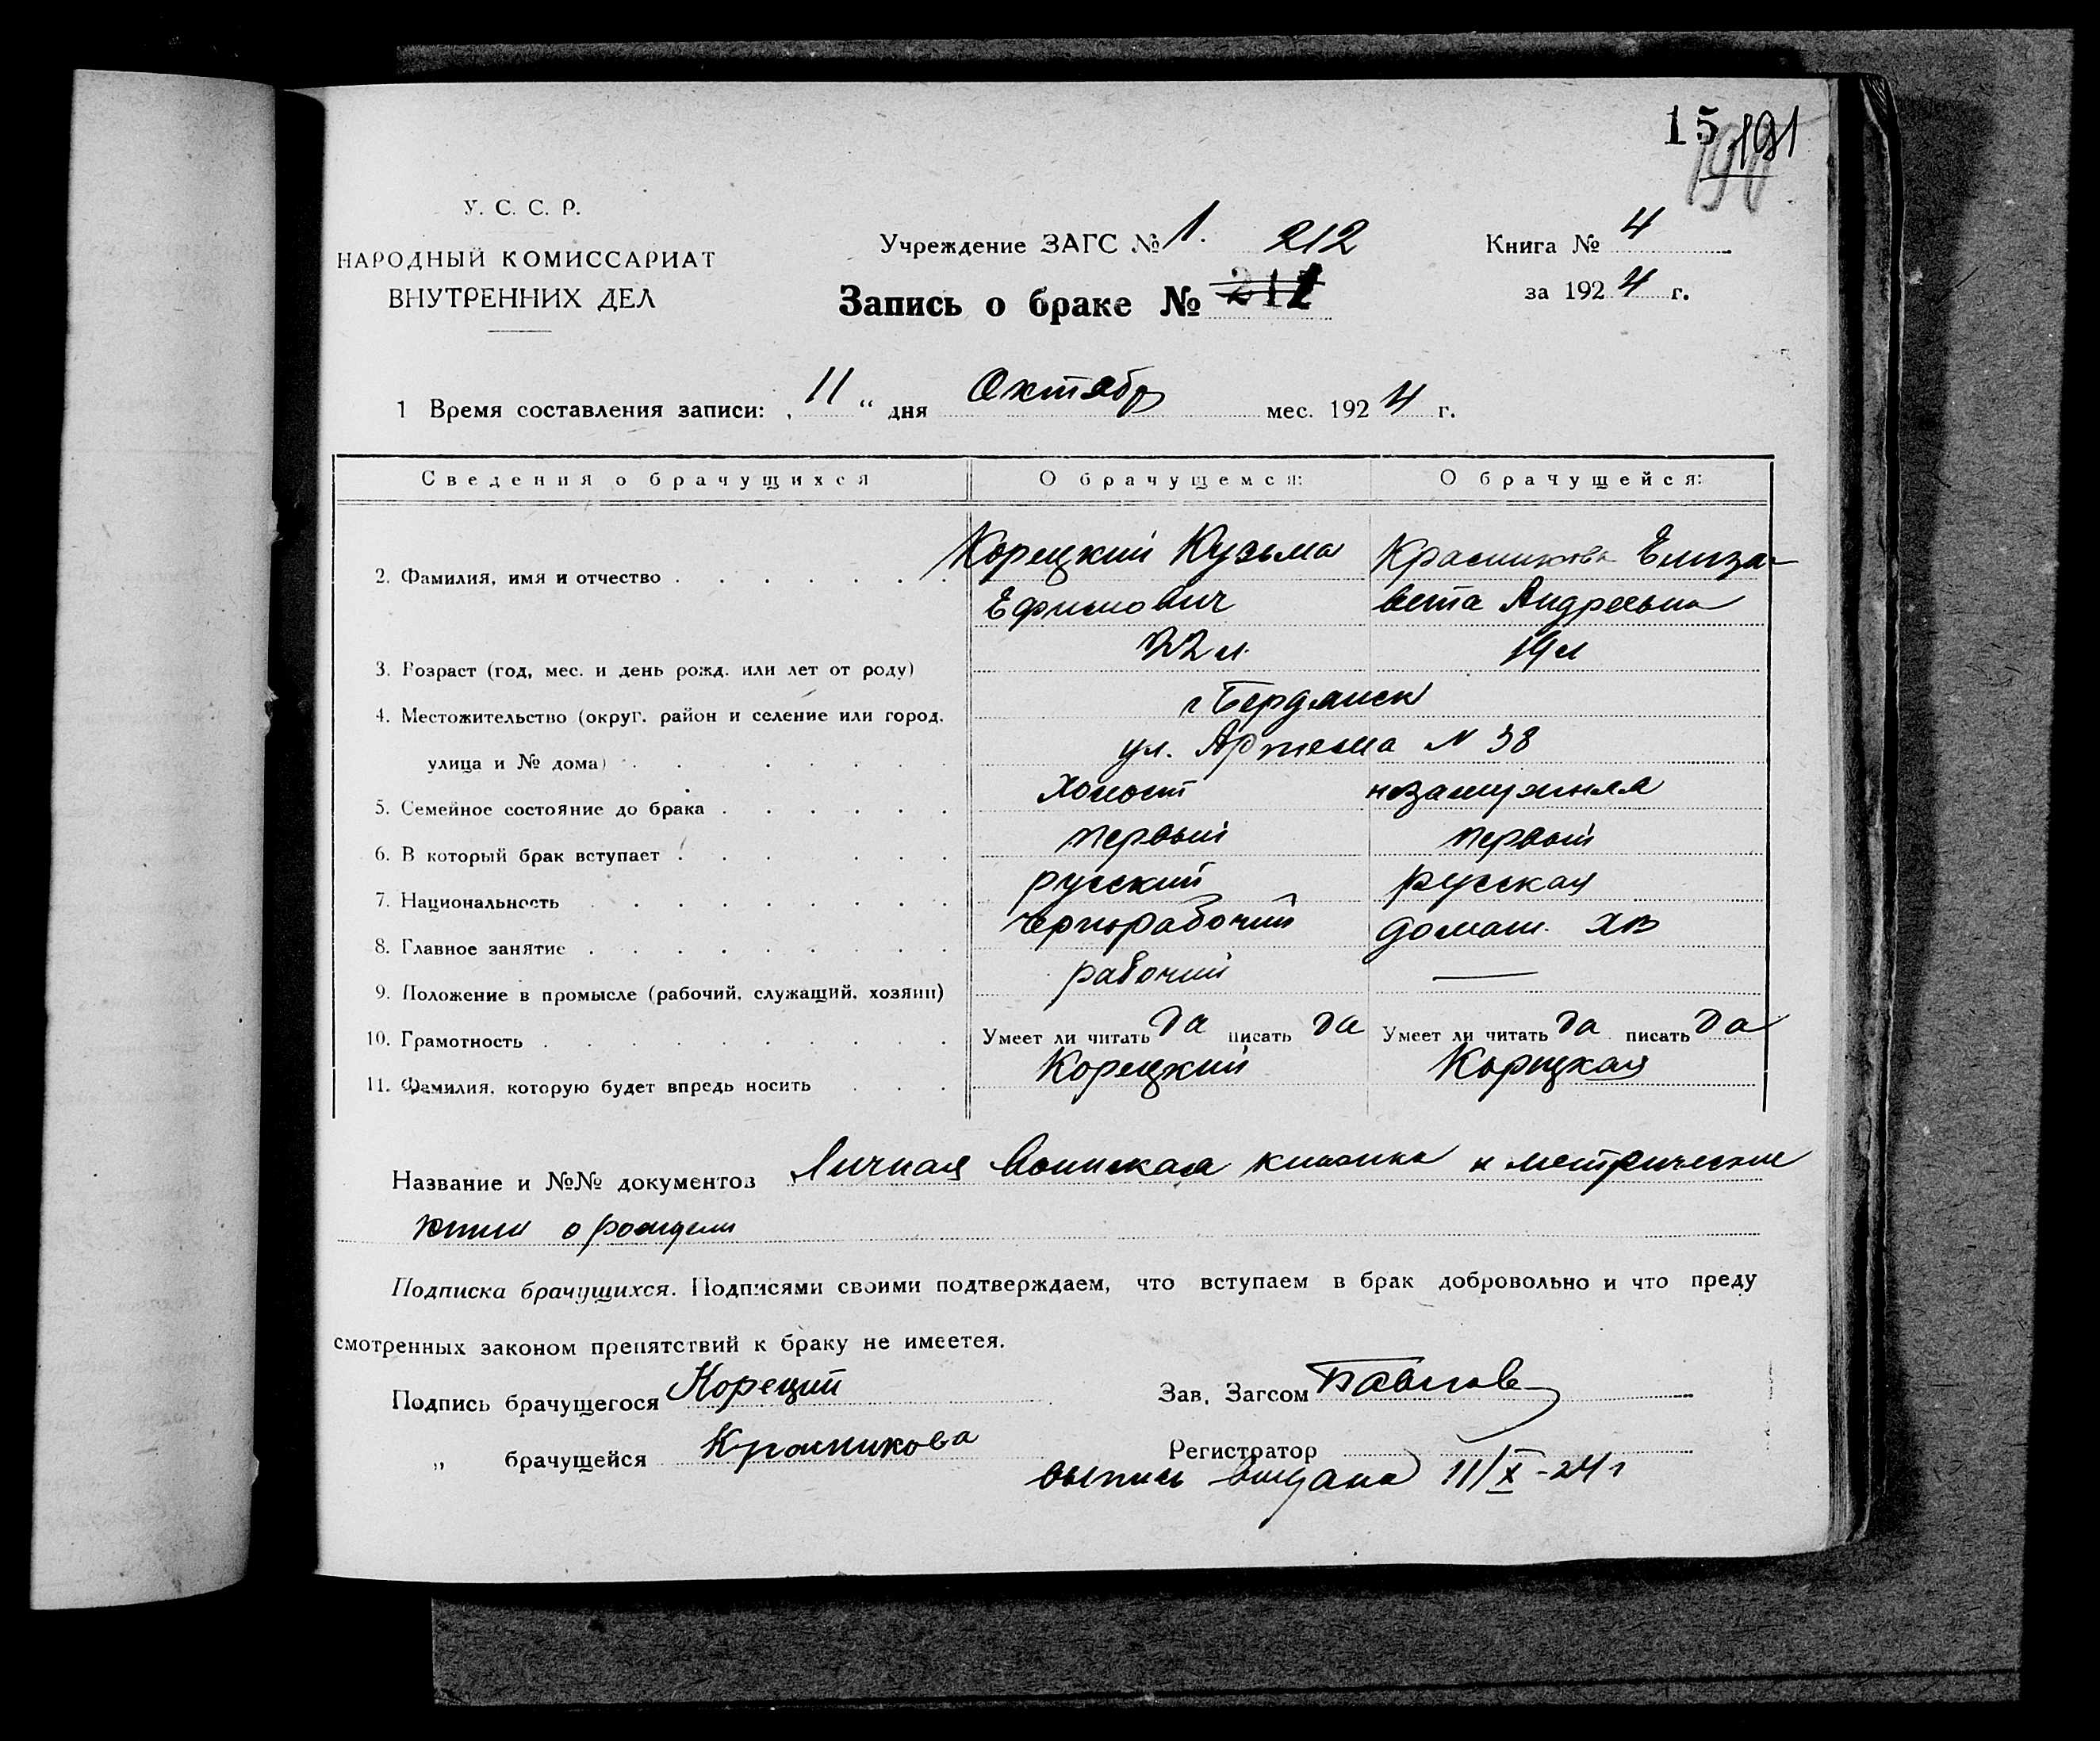 15 191
190
У. С. С. Р.
НАРОДНЫЙ КОМИССАРИАТ
ВНУТРЕННИХ ДЕЛ
Учреждение ЗАГС № 1. 212
Запись о браке № 211
Книга № 4
за 1924 г.
1 Время составления записи: „ 11 “ дня Октябр мес. 1924 г.
Сведения о брачущихся О брачущемся: О брачущейся:
2. Фамилия, имя и отчество Корецкий Кузьма Красникова Елиза-
Ефимович вета Андреевна
3. Возраст (год, мес. и день рожд. или лет от роду) 22 л. 19 л
4. Местожительство (округ, район и селение или город, г Бердянск
улица и № дома) ул. Артема N 38
5. Семейное состояние до брака холост незамужняя
6. В который брак вступает первый первый
7. Национальность русский русская
8. Главное занятие чернорабочий домаш. хв
9. Положение в промысле (рабочий, служащий, хозяин) рабочий —
10. Грамотность Умеет ли читать да писать да Умеет ли читать да писать да
11. Фамилия, которую будет впредь носить Корецкий Корецкая
Название и №№ документов Личная воинская книжка и метрические
о рождени
Подписка брачущихся. Подписями своими подтверждаем, что вступаем в брак добровольно и что преду
смотренных законом препятствий к браку не имеетея.
Подпись брачущегося Кореций Зав. Загсом Павлов
„ брачущейся Красникова Регистратор
выпись выдана 11/X-24 г